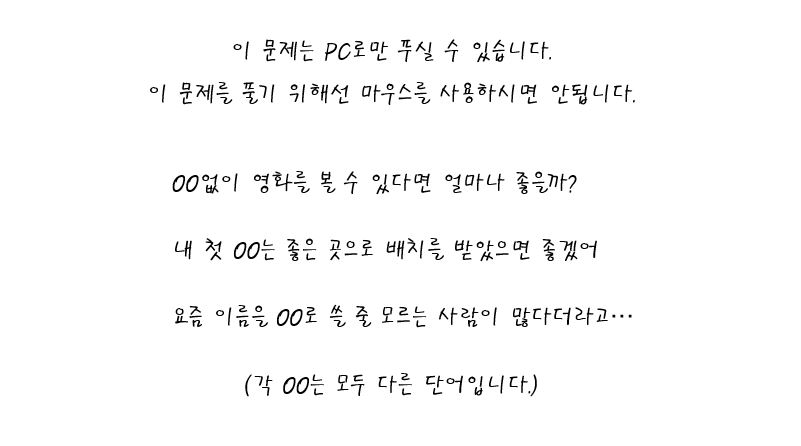 이 문제는 PC로만 푸실 수 있습니다.
이 문제를 풀기 위해선 마우스를 사용하시면 안됩니다.
OO없이 영화를 볼 수 있다면 얼마나 좋을까?
내 첫 OO는 좋은 곳으로 배치를 받았으면 좋겠어
요즘 이름을 OO로 쓸 줄 모르는 사람이 많다더라고...
(각 OO는 모두 다른 단어입니다.)